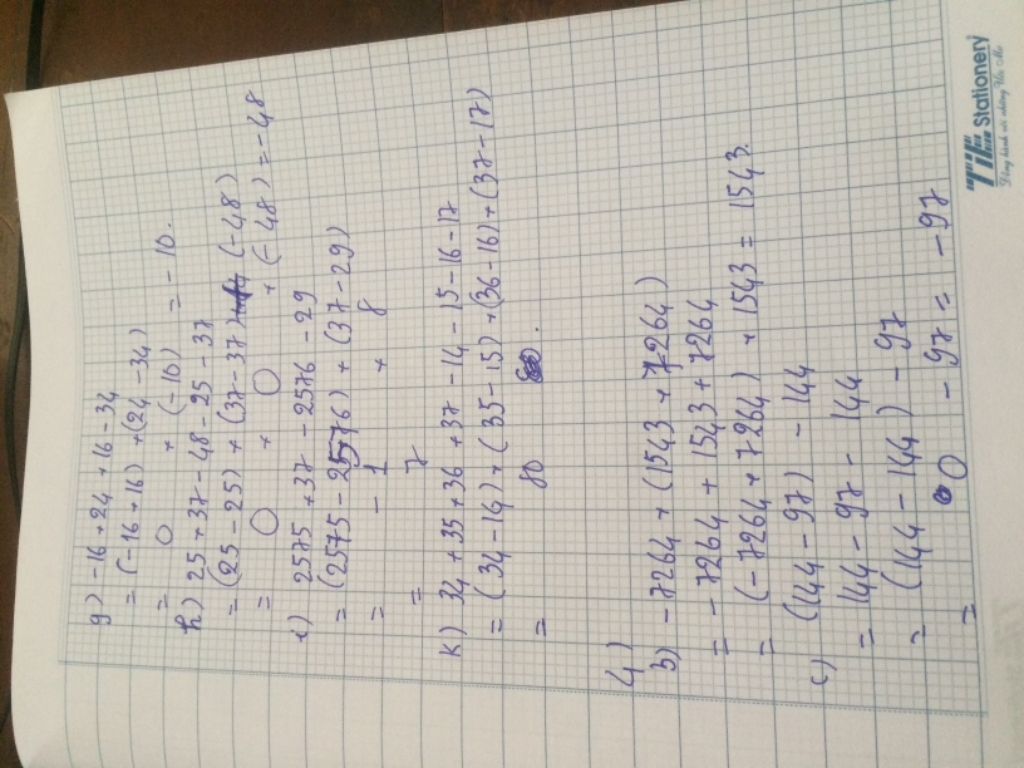 g) -16 + 24 + 16 - 34
= (-16 + 16) + (24 - 34)
= 0 + (-10) = -10.
h) 25 + 37 - 48 - 25 - 37
= (25 - 25) + (37 - 37) + (-48)
= 0 + 0 + (-48) = -48
i) 2575 + 37 - 2576 - 29
= (2575 - 2576) + (37 - 29)
= -1 + 8
= 7
k) 34 + 35 + 36 + 37 - 14 - 15 - 16 - 17
= (34 - 14) + (35 - 15) + (36 - 16) + (37 - 17)
= 80 .
4)
b) -7264 + (1543 + 7264)
= -7264 + 1543 + 7264
= (-7264 + 7264) + 1543 = 1543.
c) (144 - 97) - 144
= 144 - 97 - 144
= (144 - 144) - 97
= 0 - 97 = -97
TiTi Stationery